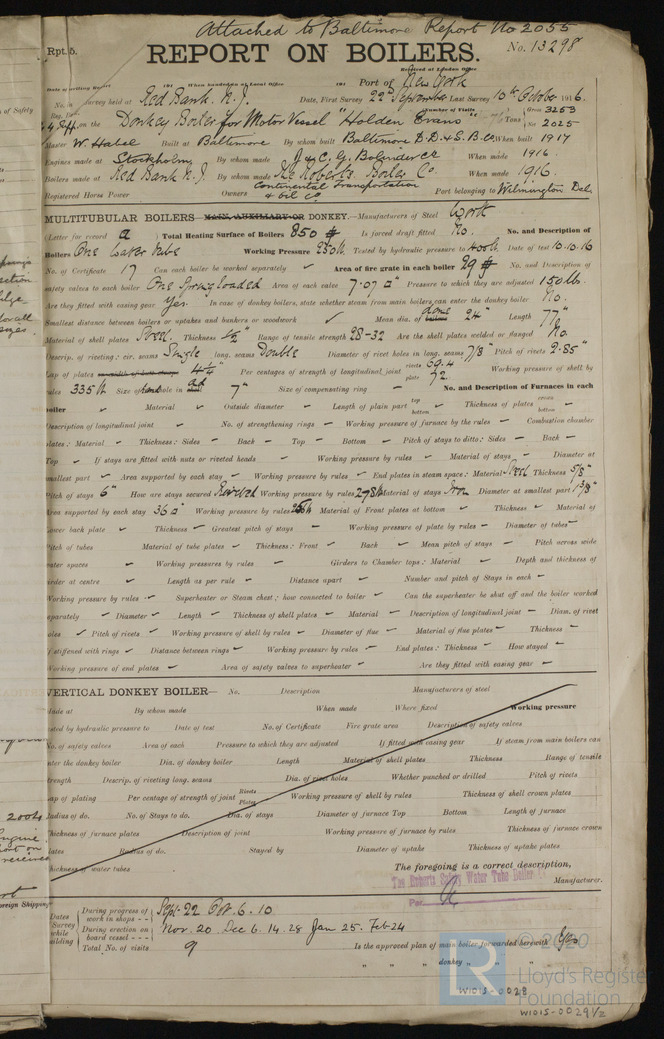 Attached to Baltimore Report No 2055
Rpt. 5.
REPORT ON BOILERS.
No. 13298
Received at London Office
Date of writing Report 191 When handed in at Local Office 191 Port of New York
No. in Survey held at Red Bank, N.J. Date, First Survey 22nd September Last Survey 10th October 1916.
(Number of Visits Gross 3253
on the Donkey Boiler for Motor Vessel "Holden Evans" Tons Net 2025
Master W. Habel Built at Baltimore By whom built Baltimore D.D. & S.B. Co. When built 1917
Engines made at Stockholm By whom made J & C. G. Bolinder Co When made 1916
Boilers made at Red Bank N.J. By whom made The Roberts Boiler Co. When made 1916.
Registered Horse Power Owners Continental Transportation & Oil Co Port belonging to Wilmington Del.
MULTITUBULAR BOILERS—MAIN, AUXILIARY OR DONKEY.—Manufacturers of Steel Worth
(Letter for record a) Total Heating Surface of Boilers 850 # Is forced draft fitted No. No. and Description of
Boilers One Water tube Working Pressure 250 lb. Tested by hydraulic pressure to 400 lb Date of test 10.10.16
No. of Certificate 17 Can each boiler be worked separately ✓ Area of fire grate in each boiler 29 # No. and Description of
safety valves to each boiler One Spring loaded Area of each valve 7.07 □" Pressure to which they are adjusted 150 lbs.
Are they fitted with easing gear Yes. In case of donkey boilers, state whether steam from main boilers can enter the donkey boiler No.
Smallest distance between boilers or uptakes and bunkers or woodwork ✓ Mean dia. of dome boilers 24" Length 77"
Material of shell plates Steel Thickness 1/2" Range of tensile strength 28-32 Are the shell plates welded or flanged No.
Descrip. of riveting: cir. seams Single long. seams Double Diameter of rivet holes in long. seams 7/8" Pitch of rivets 2.85"
Lap of plates or width of butt straps 4 1/4" Per centages of strength of longitudinal joint rivets 69.4 plate 72. Working pressure of shell by
rules 335 lb Size of hand hole in 7" Size of compensating ring ✓ No. and Description of Furnaces in each
boiler ✓ Material ✓ Outside diameter — Length of plain part top bottom — Thickness of plates crown bottom —
Description of longitudinal joint — No. of strengthening rings — Working pressure of furnace by the rules — Combustion chamber
plates: Material — Thickness: Sides — Back — Top — Bottom — Pitch of stays to ditto: Sides — Back —
Top — If stays are fitted with nuts or riveted heads — Working pressure by rules — Material of stays — Diameter at
smallest part ✓ Area supported by each stay ✓ Working pressure by rules ✓ End plates in steam space: Material Steel Thickness 5/8"
Pitch of stays 6" How are stays secured Riveted Working pressure by rules 278 lb Material of stays Iron Diameter at smallest part 1 3/8"
Area supported by each stay 36 □ Working pressure by rules Material of Front plates at bottom ✓ Thickness — Material of
Lower back plate ✓ Thickness — Greatest pitch of stays — Working pressure of plate by rules — Diameter of tubes —
Pitch of tubes Material of tube plates — Thickness: Front ✓ Back ✓ Mean pitch of stays — Pitch across wide
water spaces — Working pressures by rules — Girders to Chamber tops: Material — Depth and thickness of
girder at centre — Length as per rule — Distance apart — Number and pitch of Stays in each —
Working pressure by rules — Superheater or Steam chest; how connected to boiler — Can the superheater be shut off and the boiler worked
separately — Diameter — Length — Thickness of shell plates — Material — Description of longitudinal joint — Diam. of rivet
holes ✓ Pitch of rivets — Working pressure of shell by rules — Diameter of flue — Material of flue plates — Thickness —
If stiffened with rings — Distance between rings — Working pressure by rules — End plates: Thickness — How stayed —
Working pressure of end plates — Area of safety valves to superheater — Are they fitted with easing gear —
VERTICAL DONKEY BOILER— No. Description Manufacturers of steel
Made at By whom made When made Where fixed Working pressure
tested by hydraulic pressure to Date of test No. of Certificate Fire grate area Description of safety valves
No. of safety valves Area of each Pressure to which they are adjusted If fitted with easing gear If steam from main boilers can
enter the donkey boiler Dia. of donkey boiler Length Material of shell plates Thickness Range of tensile
strength Descrip. of riveting long. seams Dia. of rivet holes Whether punched or drilled Pitch of rivets
Lap of plating Per centage of strength of joint Rivets Plates Working pressure of shell by rules Thickness of shell crown plates
Radius of do. No. of Stays to do. Dia. of stays Diameter of furnace Top Bottom Length of furnace
Thickness of furnace plates Description of joint Working pressure of furnace by rules Thickness of furnace crown
plates Radius of do. Stayed by Diameter of uptake Thickness of uptake plates
Thickness of water tubes
The foregoing is a correct description,
The Roberts Safety Water Tube Boiler Co. Manufacturer.
Per
Dates of Survey while building
During progress of work in shops - - Sept. 22 Oct. 6. 10
During erection on board vessel - - - Nov. 20 Dec 6. 14. 28 Jan 25. Feb 24
Total No. of visits 9
Is the approved plan of main boiler forwarded herewith Yes
" " " donkey " " "
© 2020
Lloyd's Register
Foundation
LR
W1015-0028
W1015-0029 1/2